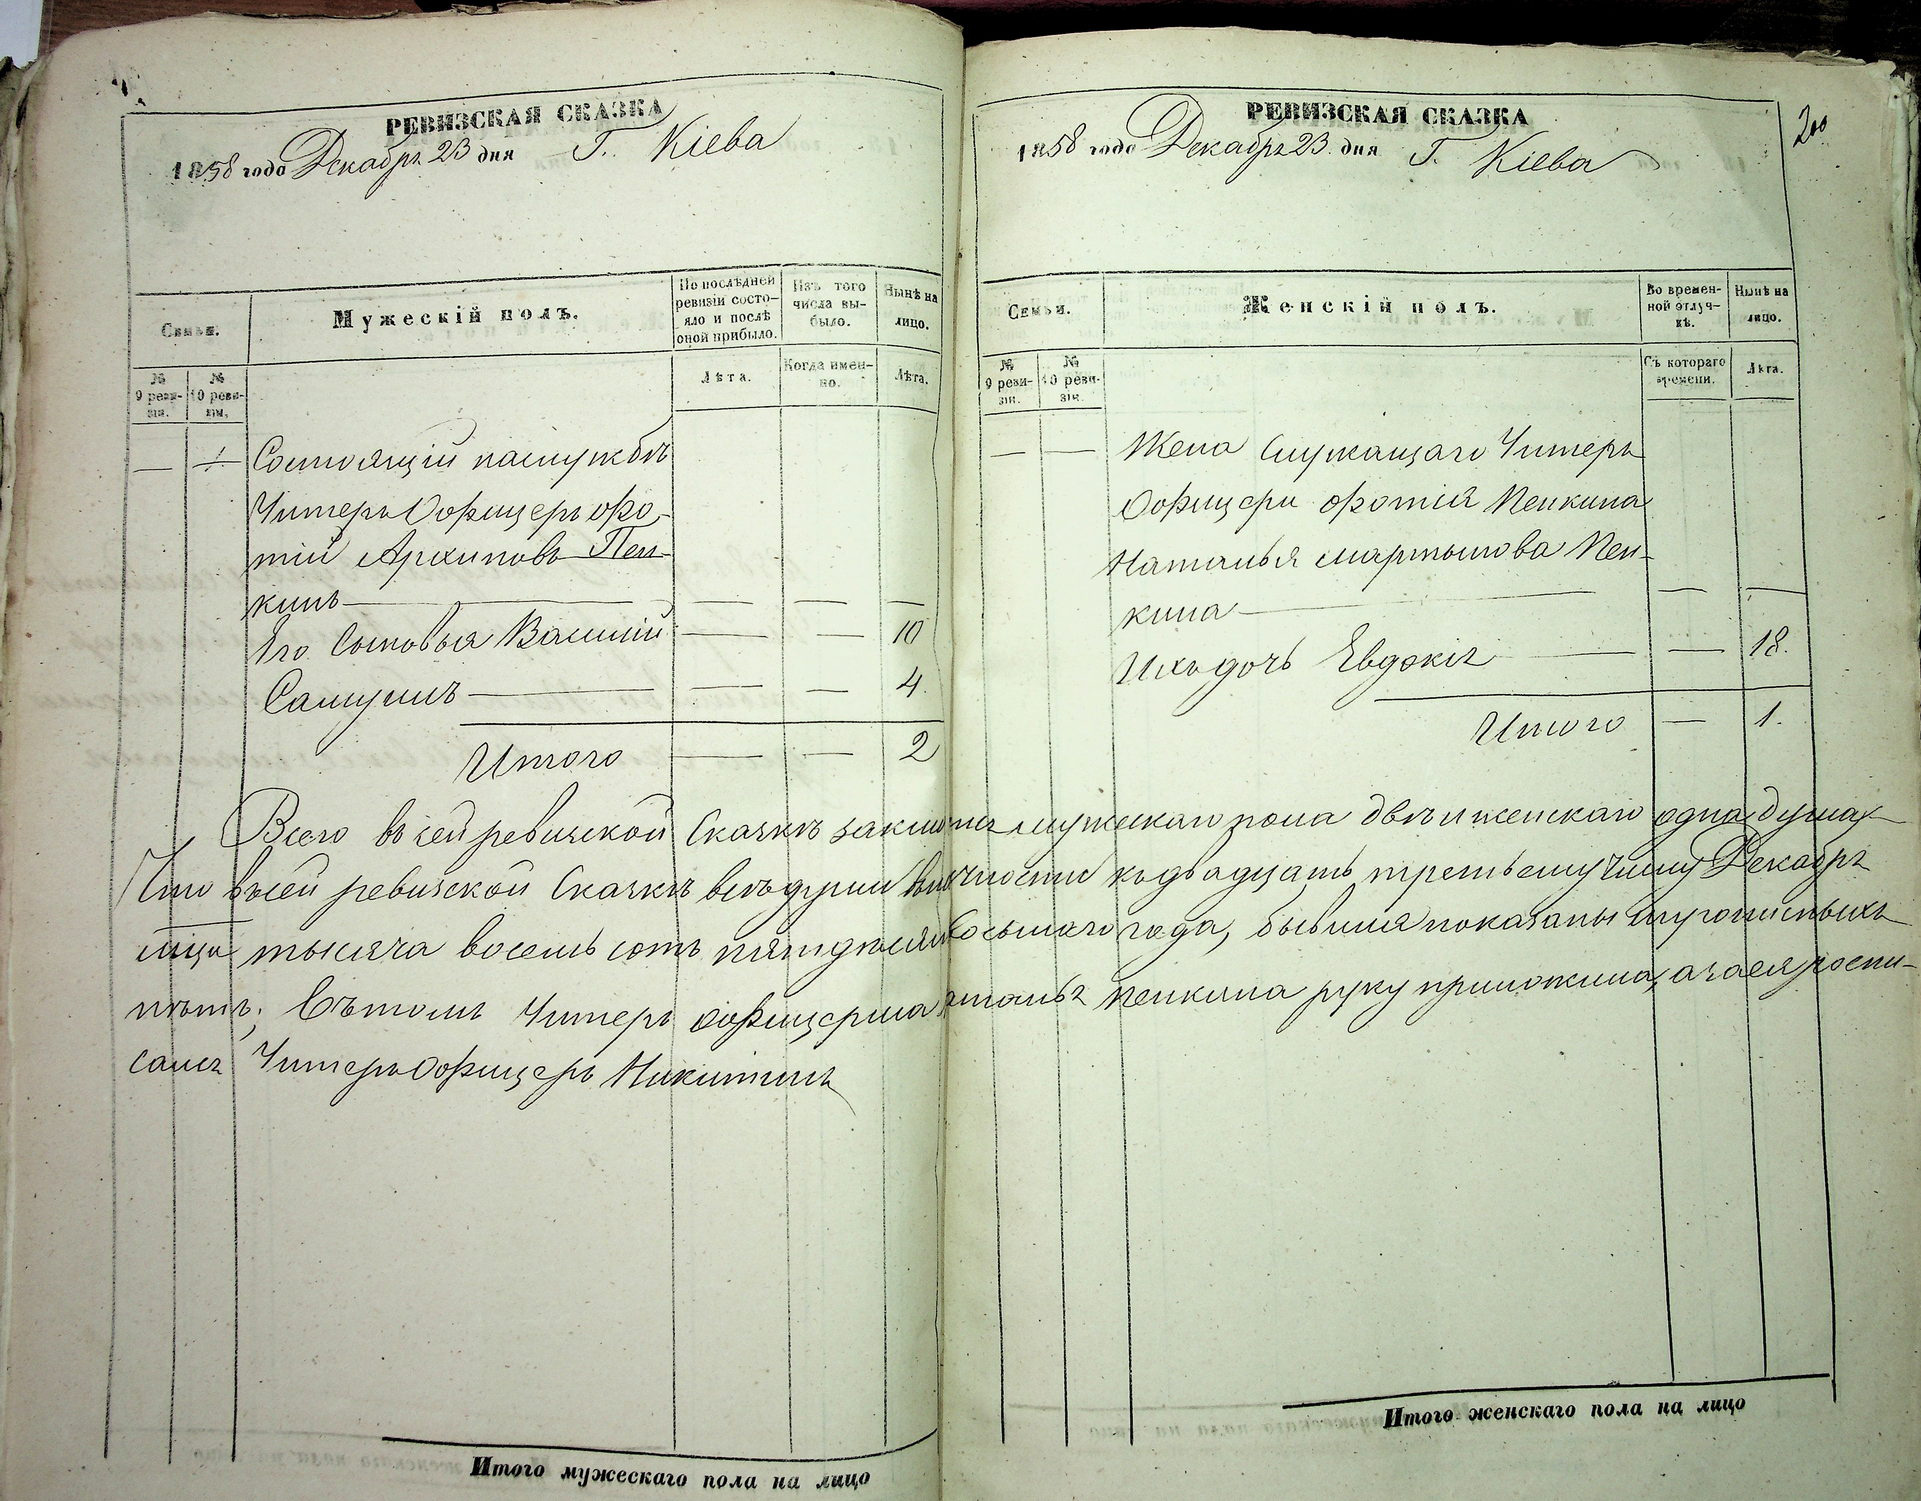 РЕВИЗСКАЯ СКАЗКА
1858 года Декабря 23 дня Г. Кіева
Семьи.
Мужескій полъ.
По послѣдней ревизіи состояло и послѣ оной прибыло.
Изъ того числа выбыло.
Нынѣ на лицо.
№ 9 ревизіи.
№ 10 ревизіи.
Лѣта.
Когда именно.
Лѣта.
— 1 Состоящій наслужбѣ
Унтеръ Офицеръ Фо-
тій Архиповъ Пен-
кинъ — — — —
Его Сыновья Василій — — 10
Самуилъ — — — 4.
Итого — — 2
РЕВИЗСКАЯ СКАЗКА
200
1858 года Декабря 23 дня Г. Кіева
Семьи.
Женскій полъ.
Во временной отлучкѣ.
Нынѣ на лицо.
№ 9 ревизіи.
№ 10 ревизіи.
Съ котораго времени.
Лѣта.
— — Жена Служащаго Унтеръ
Офицера Фотія Пенкина
Наталья Мартынова Пен-
кина — — —
Ихъ дочь Евдокія — — 18.
Итого — 1.
Всего въ сей ревизской Сказкѣ мужескаго пола двѣ и женскаго одна душа
Что въсей ревизской Сказкѣ всѣ души къ двадцать третьему числу Декабря
мца тысяча восемь сотъ пятдесятъ осьмаго года, бывшія показаны и прописныхъ
нѣтъ; Въ томъ Унтеръ Офицерша Наталья Пенкина руку приложила, а за ея роспи-
сался Унтеръ Офицеръ Никитинъ
Итого мужескаго пола на лицо
Итого женскаго пола на лицо